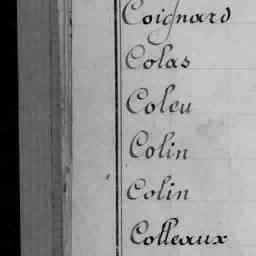 Coignard
Colas
Coleu
Colin
Colin
Colleaux